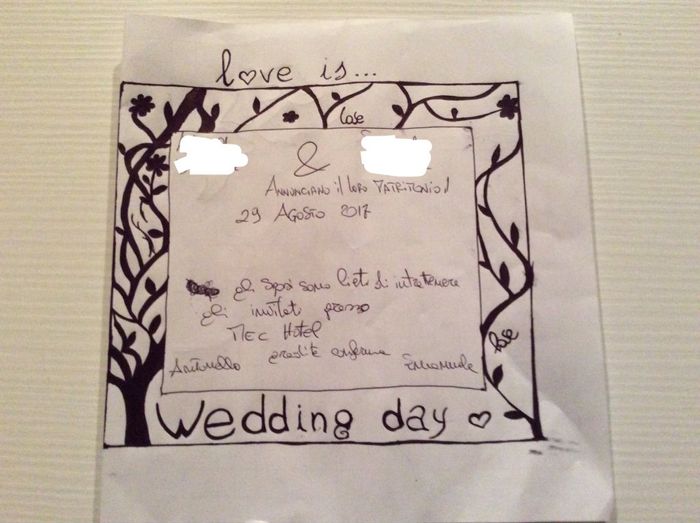 love is...
lose
&
ANNUNCIANO il loro MATRIMONIO!
29 AGOSTO 2017
gli sposi sono lieti di intrattenere
gli invitati presso
MEC HOTEL
gradita conferma
Antonello
Emanuele
lose
wedding day